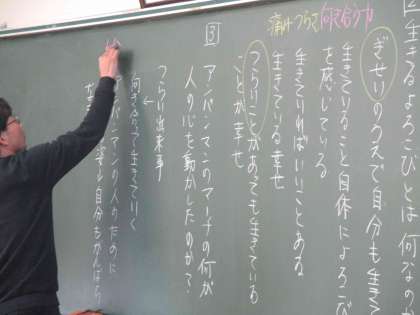 痛み つらさ 何で合う力
生きるよろこびとは何なのか
ぎせいのうえで自分も生き
生きていること自体によろこび
を感じている
生きていればいいことある
生きている幸せ
つらいことがあっても生きている
ことが幸せ
3
アンパンマンのマーチの何が
人の心を動かしたのか?
つらい出来事
↓
向き合って生きていく
アンパンマンの人のために
自分もがんばろ